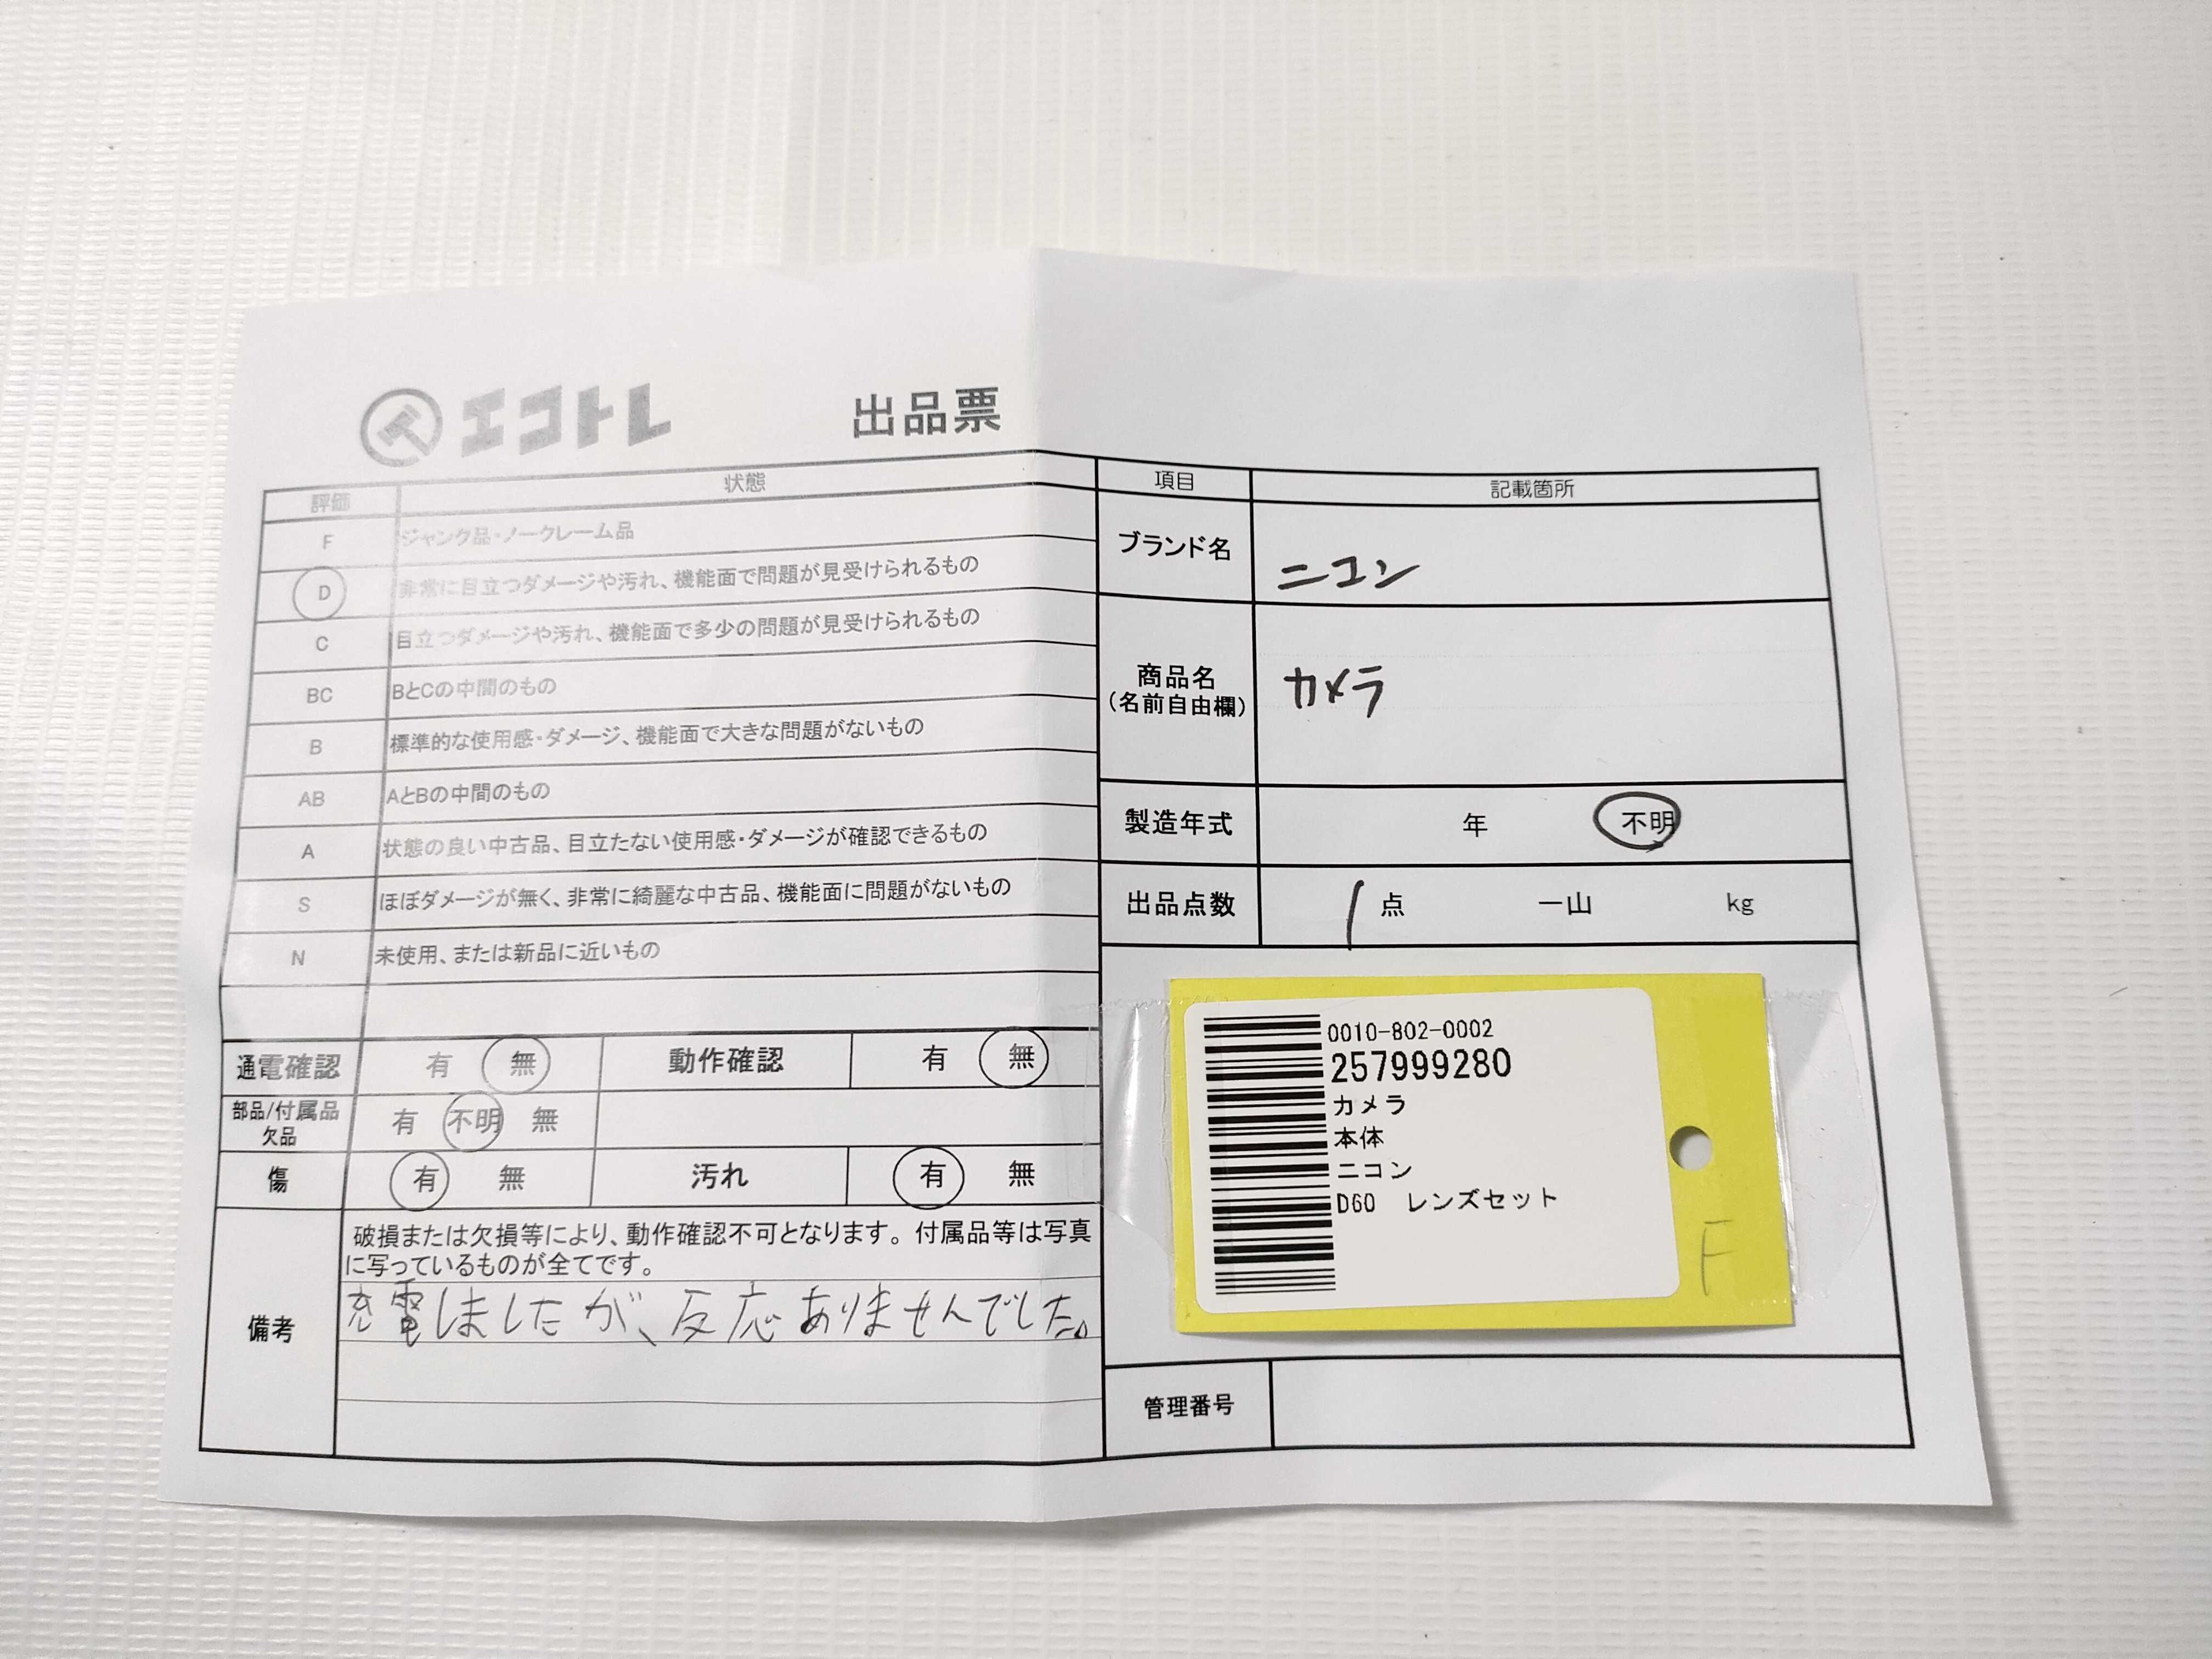 エコトレ
出品票
評価 状態
F ジャンク品・ノークレーム品
D 非常に目立つダメージや汚れ、機能面で問題が見受けられるもの
C 目立つダメージや汚れ、機能面で多少の問題が見受けられるもの
BC BとCの中間のもの
B 標準的な使用感・ダメージ、機能面で大きな問題がないもの
AB AとBの中間のもの
A 状態の良い中古品、目立たない使用感・ダメージが確認できるもの
S ほぼダメージが無く、非常に綺麗な中古品、機能面に問題がないもの
N 未使用、または新品に近いもの
通電確認 有 無 動作確認 有 無
部品/付属品
欠品
有 不明 無
傷 有 無 汚れ 有 無
備考
破損または欠損等により、動作確認不可となります。付属品等は写真
に写っているものが全てです。
充電しましたが、反応ありませんでした。
項目 記載箇所
ブランド名 ニコン
商品名
(名前自由欄)
カメラ
製造年式 年 不明
出品点数 1 点 一山 kg
0010-802-0002
257999280
カメラ
本体
ニコン
D60 レンズセット
F
管理番号